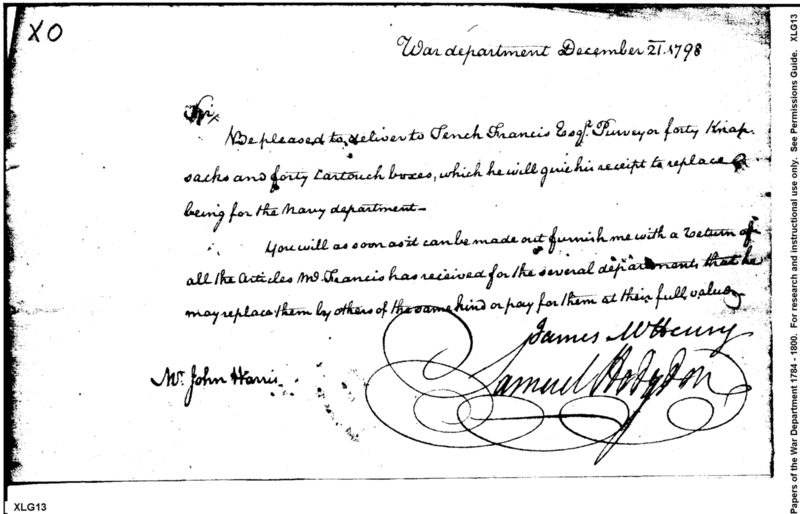 XO
War department December 21. 1798
Sir,
Be pleased to deliver to Tench Francis Esqr. Purveyor forty Knap-
sacks and forty Cartouch boxes, which he will give his receipt to replace
being for the Navy department—
You will as soon as it can be made out furnish me with a return of
all the Articles Mr. Francis has received for the several departments that he
may replace them by others of the same kind or pay for them at their full value
James McHenry
Samuel Hodgdon
Mr. John Harris
XLG13
Papers of the War Department 1784 - 1800. For research and instructional use only. See Permissions Guide. XLG13